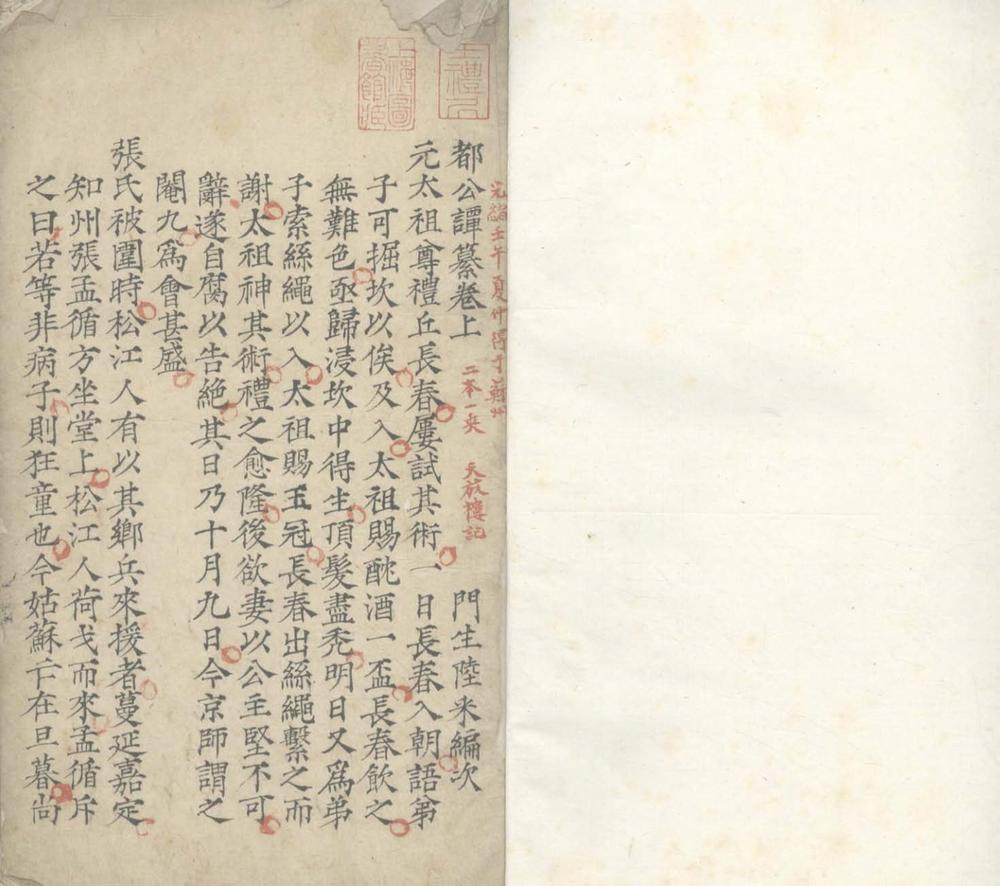 上海圖書館臧
光緒壬午夏仲得于蘇州
都公譚纂卷上 二本一夾 天放樓記 門生陸采編次
元太祖尊禮丘長春屢試其術一日長春入朝語弟
子可掘坎以俟及入太祖賜酖酒一盃長春飲之
無難色亟歸浸坎中得生頂髮盡禿明日又爲弟
子索絲繩以入太祖賜玉冠長春出絲繩繫之而
謝太祖神其術禮之愈隆後欲妻以公主堅不可
辭遂自腐以告絕其日乃十月九日今京師謂之
閹九爲會甚盛
張氏被圍時松江人有以其鄉兵來援者蔓延嘉定
知州張孟循方坐堂上松江人荷戈而來孟循斥
之曰若等非病子則狂童也今姑蘇亡在旦暮尚